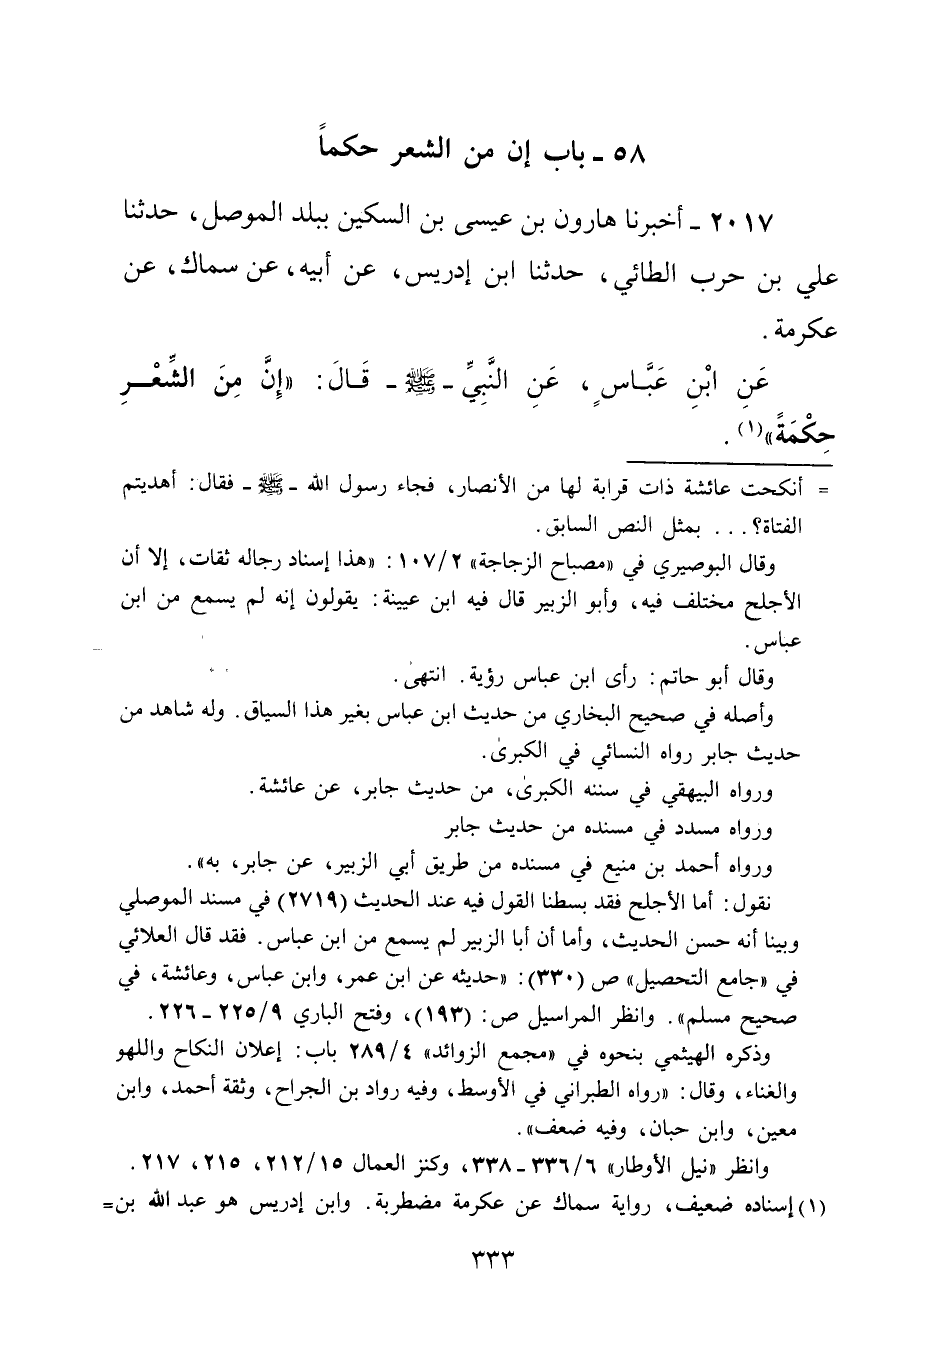 ٥٨ ـ باب إن من الشعر حكماً
٢٠١٧ ـ أخبرنا هارون بن عيسى بن السكين ببلد الموصل، حدثنا
علي بن حرب الطائي، حدثنا ابن إدريس، عن أبيه، عن سماك، عن
عكرمة.
عَنِ ابْنِ عَبَّاسٍ، عَنِ النَّبِيِّ ـ ﷺ ـ قَالَ: «إِنَّ مِنَ الشِّعْرِ
حِكْمَةً»(١).
= أنكحت عائشة ذات قرابة لها من الأنصار، فجاء رسول الله ـ ﷺ ـ فقال: أهديتم
الفتاة؟... بمثل النص السابق.
وقال البوصيري في «مصباح الزجاجة» ١٠٧/٢: «هذا إسناد رجاله ثقات، إلا أن
الأجلح مختلف فيه، وأبو الزبير قال فيه ابن عيينة: يقولون إنه لم يسمع من ابن
عباس.
وقال أبو حاتم: رأى ابن عباس رؤية. انتهىٰ.
وأصله في صحيح البخاري من حديث ابن عباس بغير هذا السياق. وله شاهد من
حديث جابر رواه النسائي في الكبرىٰ.
ورواه البيهقي في سننه الكبرىٰ، من حديث جابر، عن عائشة.
ورواه مسدد في مسنده من حديث جابر
ورواه أحمد بن منيع في مسنده من طريق أبي الزبير، عن جابر، به».
نقول: أما الأجلح فقد بسطنا القول فيه عند الحديث (٢٧١٩) في مسند الموصلي
وبينا أنه حسن الحديث، وأما أن أبا الزبير لم يسمع من ابن عباس. فقد قال العلائي
في «جامع التحصيل» ص (٣٣٠): «حديثه عن ابن عمر، وابن عباس، وعائشة، في
صحيح مسلم». وانظر المراسيل ص: (١٩٣)، وفتح الباري ٢٢٥/٩ ـ ٢٢٦.
وذكره الهيثمي بنحوه في «مجمع الزوائد» ٢٨٩/٤ باب: إعلان النكاح واللهو
والغناء، وقال: «رواه الطبراني في الأوسط، وفيه رواد بن الجراح، وثقة أحمد، وابن
معين، وابن حبان، وفيه ضعف».
وانظر «نيل الأوطار» ٣٣٦/٦ ـ ٣٣٨، وكنز العمال ٢١٢/١٥، ٢١٥، ٢١٧.
(١) إسناده ضعيف، رواية سماك عن عكرمة مضطربة. وابن إدريس هو عبد الله بن=
٣٣٣